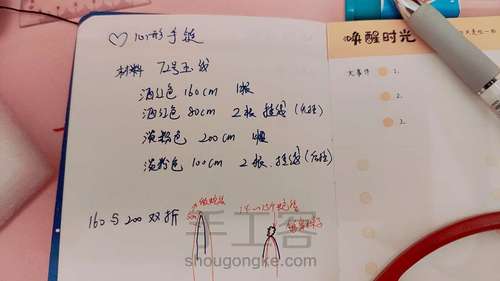 ♡心形手链
材料 72号玉线
酒红色160cm 1根
酒红色80cm 2根 挂线(行程)
淡粉色 200cm 1根
淡粉色 100cm 2根 挂线
160与200双折
唤醒时光
大事件
1.
2.
3.
手工客
shougongke.com